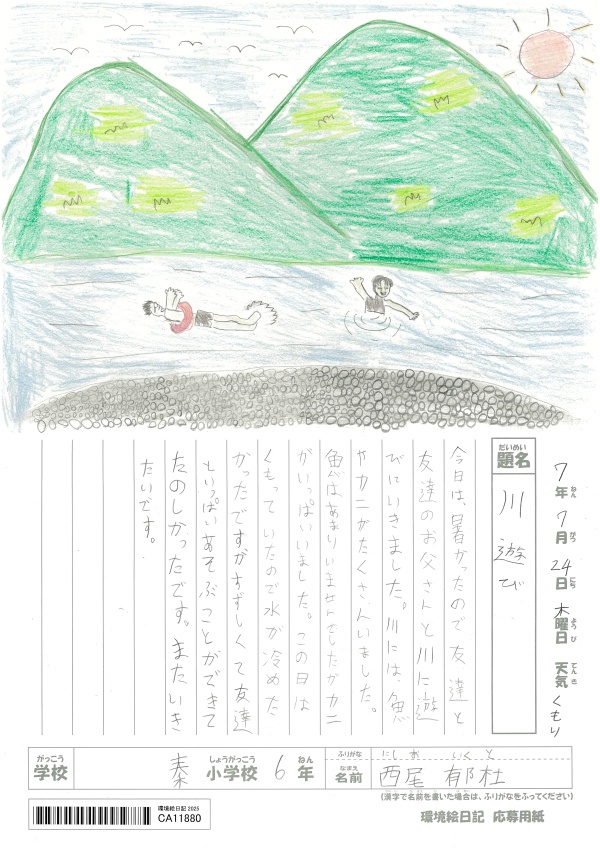 7年7月24日木曜日 天気くもり
ねん がつ にち ようび てんき
だいめい
題名
川遊び
今日は、暑かったので友達と
友達のお父さんと川に遊
びにいきました。川には、魚
やカニがたくさんいました。
魚はあまりいませんでしたがカニ
がいっぱいいました。この日は
くもっていたので水が冷めた
かったですがすずしくて友達
といっぱいあそぶことができて
たのしかったです。またいき
たいです。
がっこう
学校
秦
しょうがっこう ねん
小学校 6年
ふりがな にしお いくと
なまえ
名前 西尾 郁杜
(漢字で名前を書いた場合は、ふりがなをふってください)
環境絵日記 2025
CA11880
環境絵日記 応募用紙